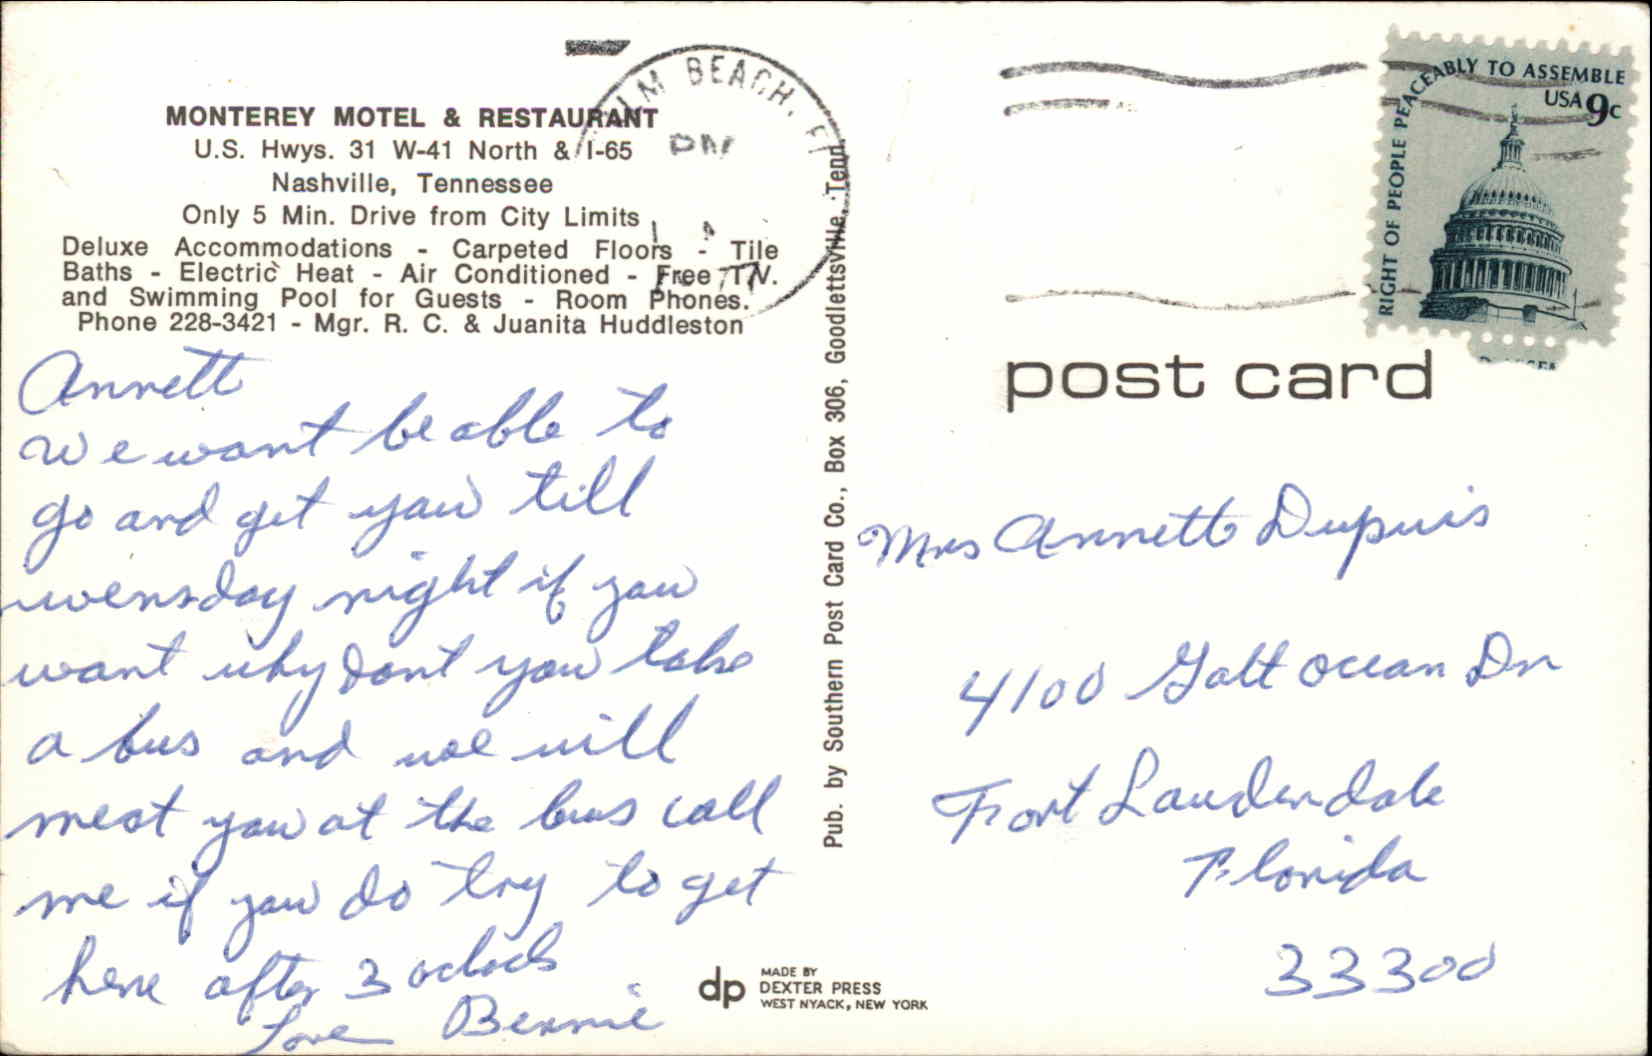 MONTEREY MOTEL & RESTAURANT
U.S. Hwys. 31 W-41 North & I-65
Nashville, Tennessee
Only 5 Min. Drive from City Limits
Deluxe Accommodations - Carpeted Floors - Tile
Baths - Electric Heat - Air Conditioned - Free TV.
and Swimming Pool for Guests - Room Phones.
Phone 228-3421 - Mgr. R. C. & Juanita Huddleston
Annett
We want be able to
go and get you till
wensday night if you
want why dont you take
a bus and we will
meat you at the bus call
me if you do try to get
here after 3 oclock
Love Bennie
Pub. by Southern Post Card Co., Box 306, Goodlettsville, Tenn.
LM BEACH, FL
PM
RIGHT OF PEOPLE PEACEABLY TO ASSEMBLE
USA 9c
post card
Mrs Annett Dupuis
4100 Galt Ocean Dr
Fort Lauderdale
Florida
33300
dp
MADE BY
DEXTER PRESS
WEST NYACK, NEW YORK